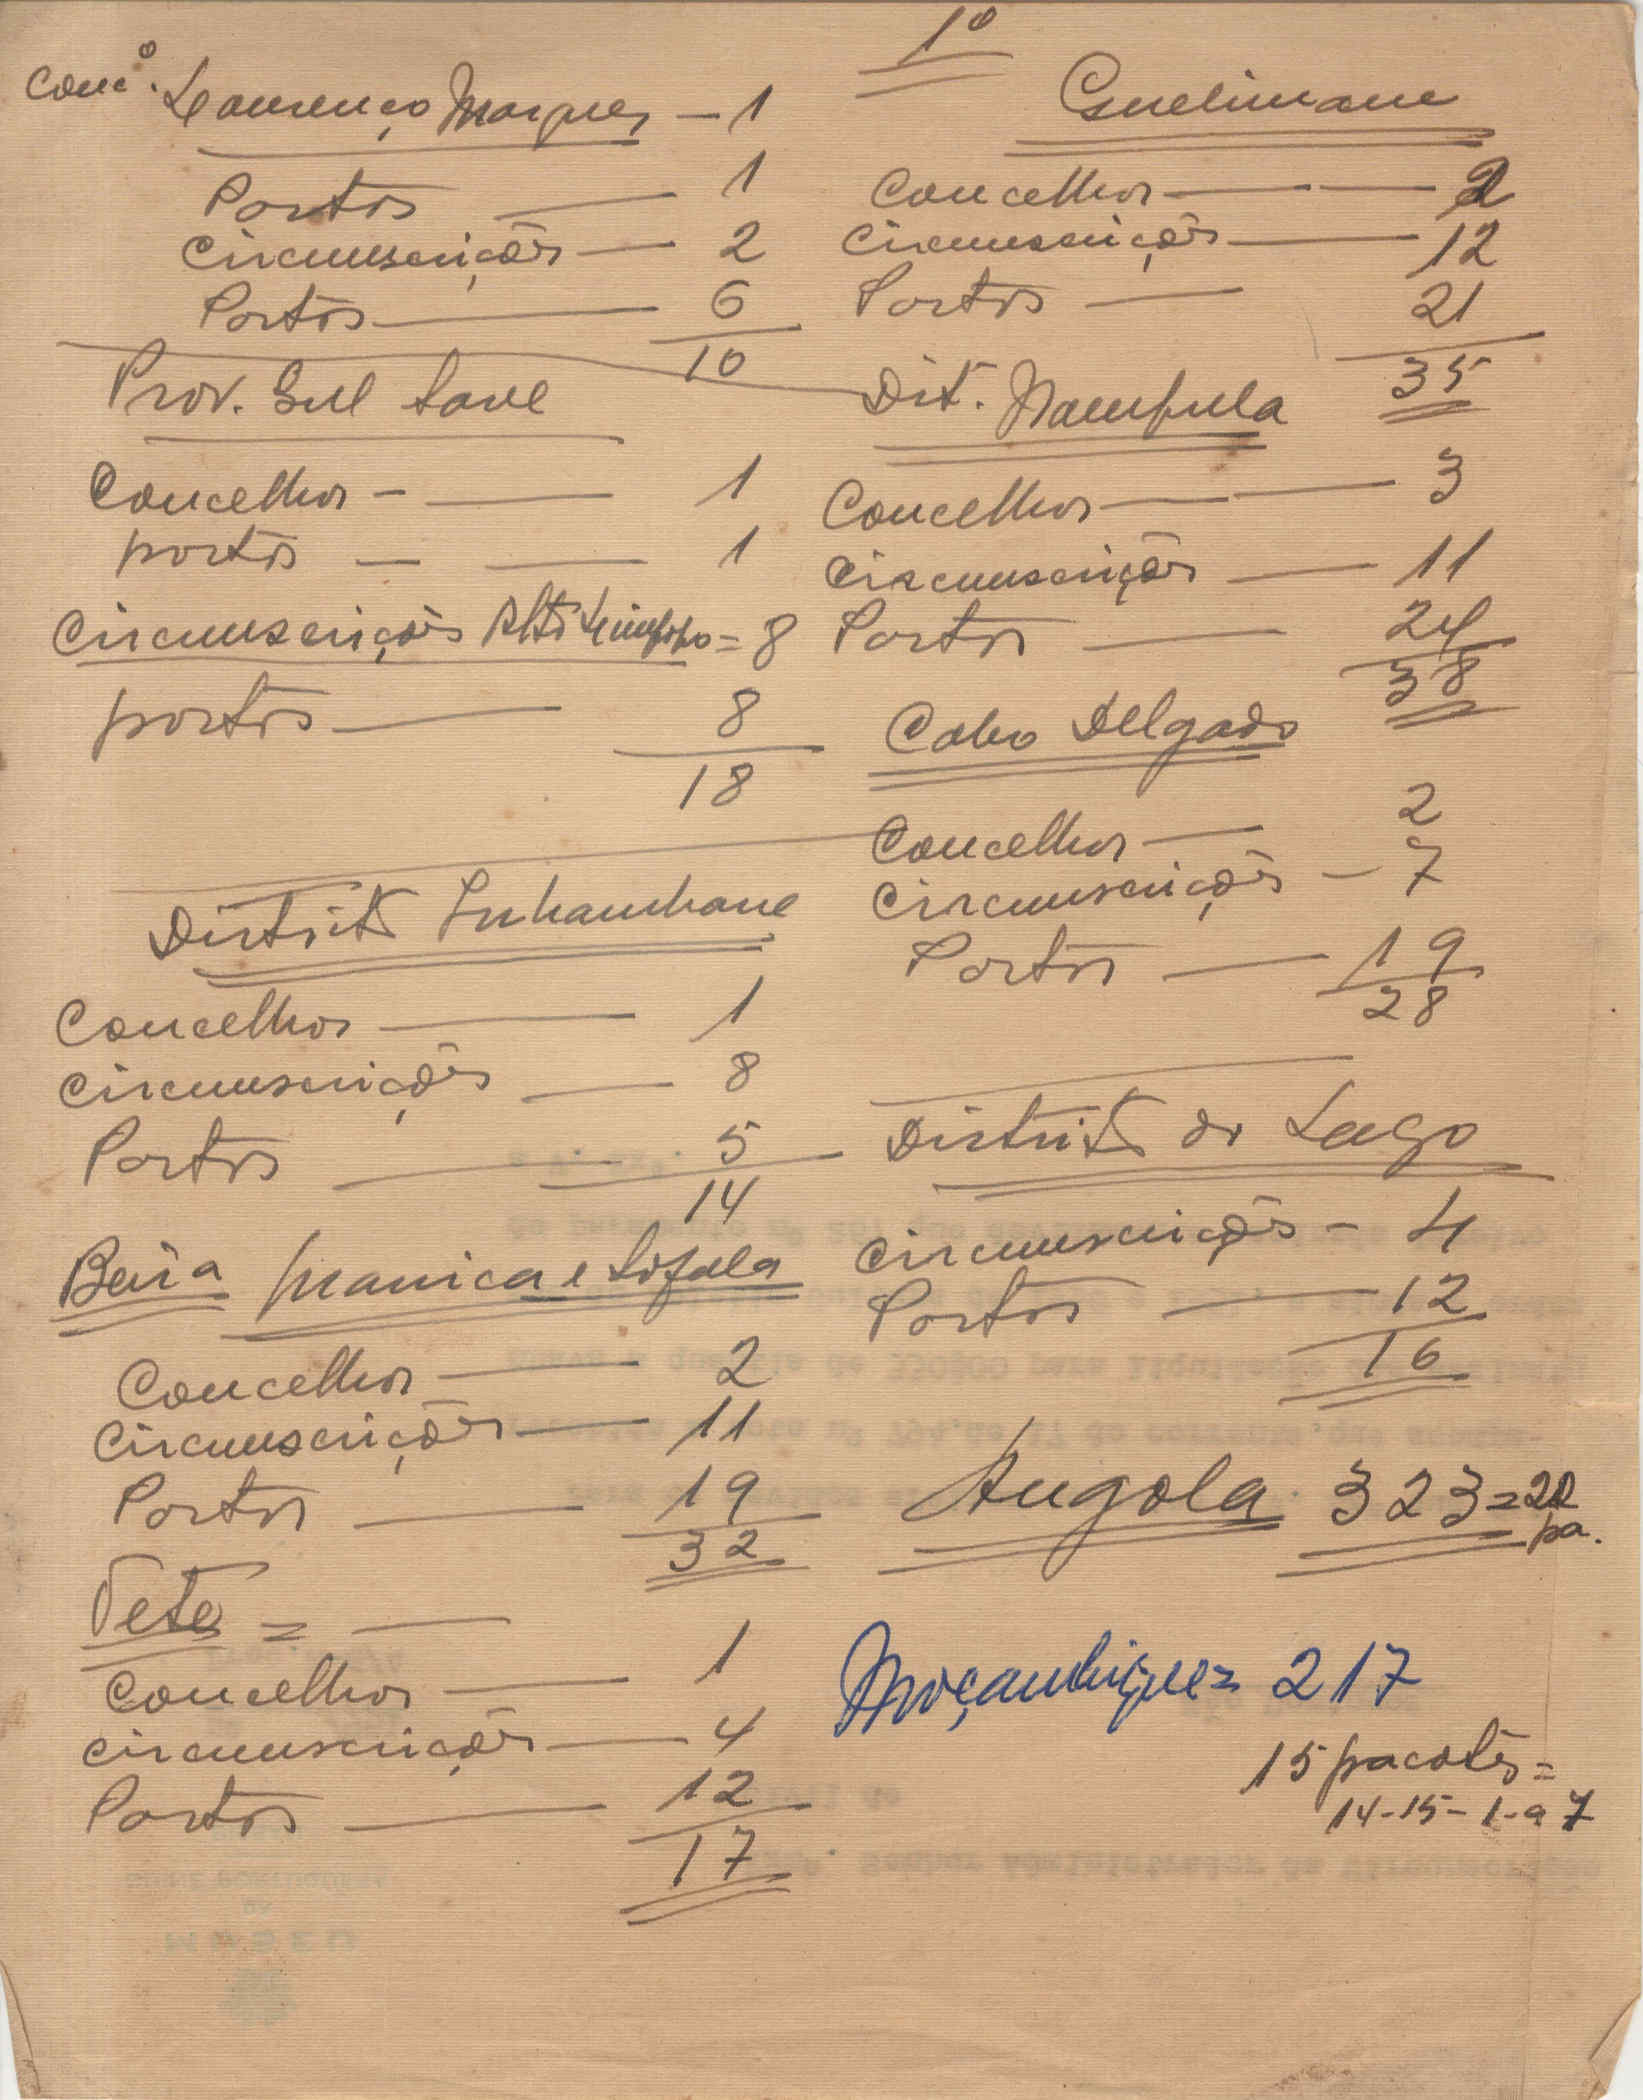 1º
Concº. Lourenço Marques - 1
Postos — 1
Circunscrições — 2
Postos — 6
10
Prov. Sul Save
Concelhos - — 1
postos — — 1
Circunscrições Alto Limpopo = 8
postos — 8
18
Distrito Inhambane
Concelhos — 1
Circunscrições — 8
Postos — 5
14
Beira Manica e Sofala
Concelhos — 2
Circunscrições — 11
Postos — 19
32
Tete = —
Concelhos — 1
circunscrições — 4
Postos — 12
17
Quelimane
Concelhos — — 2
Circunscrições — 12
Postos — 21
35
Dist. Nampula
Concelhos — — 3
Circunscrições — 11
Postos — 24
38
Cabo Delgado
Concelhos — 2
Circunscrições — 7
Postos — 19
28
Distrito do Lago
Circunscrições - 4
Postos — 12
16
Angola 323 = 22
pa.
Moçambique = 217
15 pacotes =
14-15-1-a 7